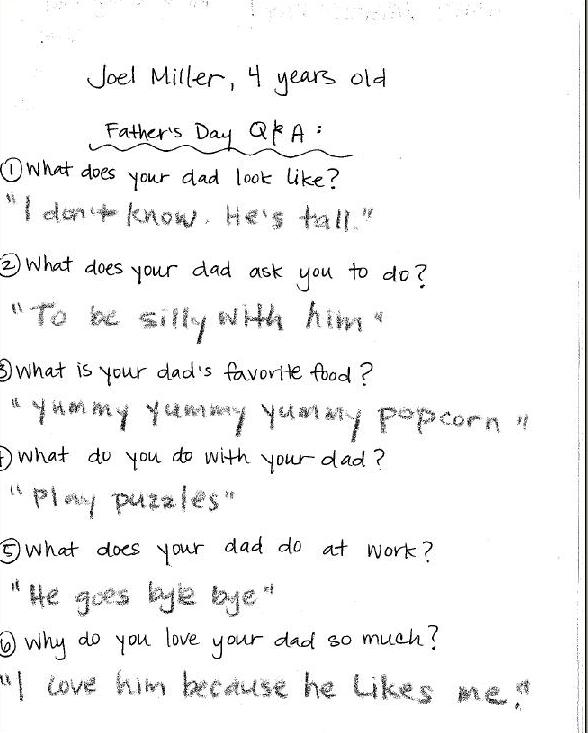 Joel Miller, 4 years old
Father's Day Q&A:
① What does your dad look like?
"I don't know. He's tall."
② What does your dad ask you to do?
"To be silly with him"
③ What is your dad's favorite food?
"yummy yummy yummy popcorn"
④ What do you do with your dad?
"Play puzzles"
⑤ What does your dad do at work?
"He goes bye bye"
⑥ Why do you love your dad so much?
"I love him because he Likes me."